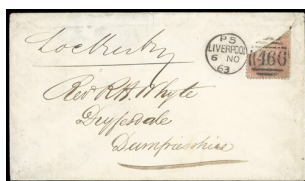 Lockerby
PS
LIVERPOOL
6 NO
63
466
Revd R. H. Whyte
Dryfesdale
Dumfriesshire